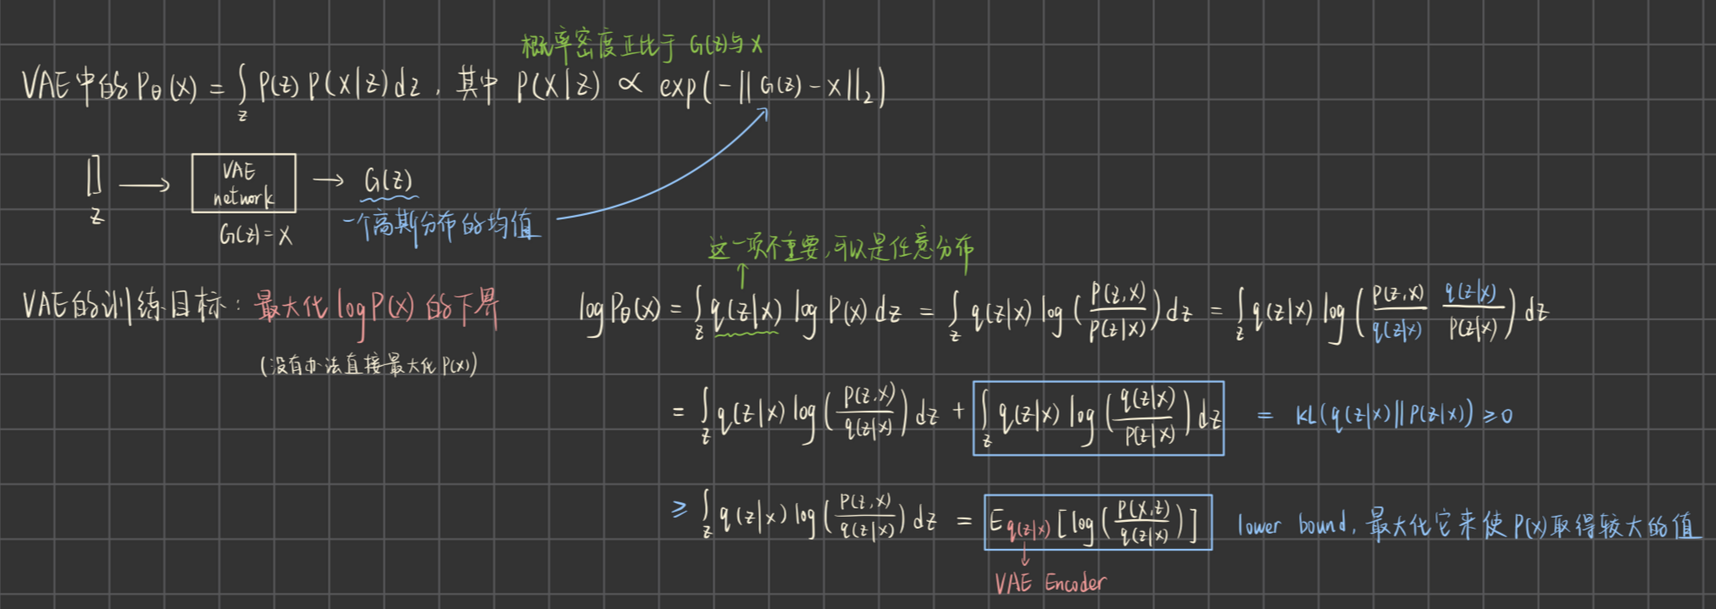 概率密度正比于 G(z)与 x
VAE中的 Pθ(x) = ∫z P(z) P(x|z) dz , 其中 P(x|z) ∝ exp(-||G(z) - x||₂)
z
VAE
network
G(z) = x
G(z)
一个高斯分布的均值
这一项不重要,可以是任意分布
VAE的训练目标: 最大化 log P(x) 的下界
(没有办法直接最大化 P(x))
log Pθ(x) = ∫z q(z|x) log P(x) dz = ∫z q(z|x) log(P(z,x)/P(z|x)) dz = ∫z q(z|x) log(P(z,x)/q(z|x) q(z|x)/P(z|x)) dz
= ∫z q(z|x) log(P(z,x)/q(z|x)) dz + ∫z q(z|x) log(q(z|x)/P(z|x)) dz = KL(q(z|x)||P(z|x)) ≥ 0
≥ ∫z q(z|x) log(P(z,x)/q(z|x)) dz = E q(z|x) [log(P(x,z)/q(z|x))] lower bound, 最大化它来使 P(x) 取得较大的值
VAE Encoder